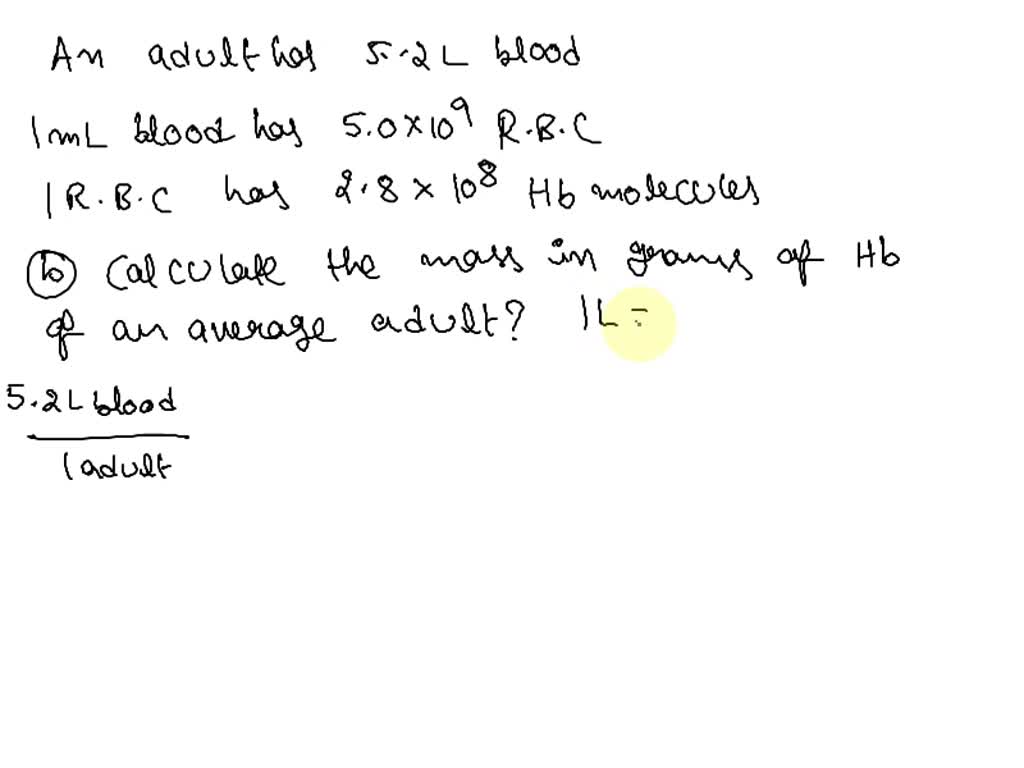 An adult has 5.2L blood
1mL blood has 5.0×10⁹ R.B.C
1 R.B.C has 2.8 × 10⁸ Hb molecules
(b) Calculate the mass in grams of Hb
of an average adult? 1L =
5.2L blood
1 adult